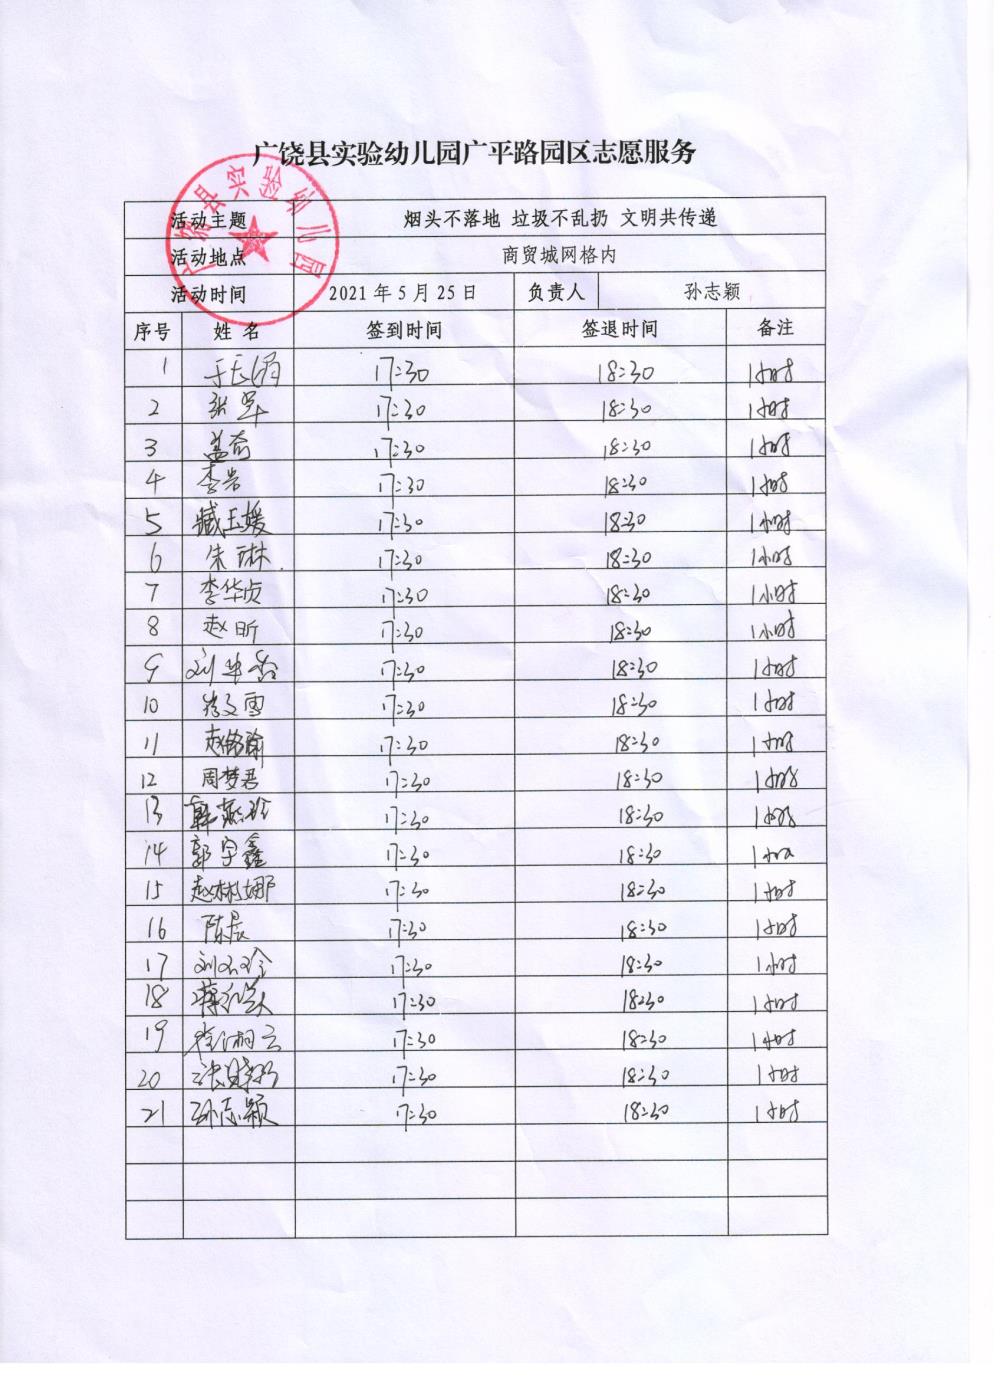 广饶县实验幼儿园广平路园区志愿服务
广饶县实验幼儿园
活动主题 烟头不落地 垃圾不乱扔 文明共传递
活动地点 商贸城网格内
活动时间 2021年5月25日 负责人 孙志颖
序号 姓名 签到时间 签退时间 备注
1 17:30 18:30 1小时
2 张军 17:30 18:30 1小时
3 盖奇 17:30 18:30 1小时
4 李岩 17:30 18:30 1小时
5 臧玉媛 17:30 18:30 1小时
6 朱琳 17:30 18:30 1小时
7 李华贞 17:30 18:30 1小时
8 赵昕 17:30 18:30 1小时
9 17:30 18:30 1小时
10 17:30 18:30 1小时
11 17:30 18:30 1小时
12 周梦君 17:30 18:30 1小时
13 17:30 18:30 1小时
14 郭宇鑫 17:30 18:30 1小时
15 赵林娜 17:30 18:30 1小时
16 陈晨 17:30 18:30 1小时
17 17:30 18:30 1小时
18 17:30 18:30 1小时
19 徐湘云 17:30 18:30 1小时
20 17:30 18:30 1小时
21 孙志颖 17:30 18:30 1小时